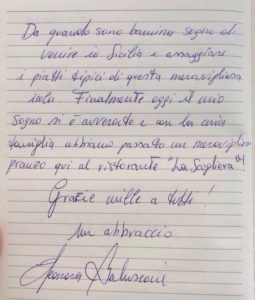 Da quando sono bambina sogno di
venire in Sicilia e assaggiare
i piatti tipici di questa meravigliosa
isola. Finalmente oggi il mio
sogno si è avverato e con la mia
famiglia abbiamo passato un meraviglioso
pranzo qui al ristorante "La Scogliera"!
Grazie mille a tutti!
Un abbraccio
Eleonora